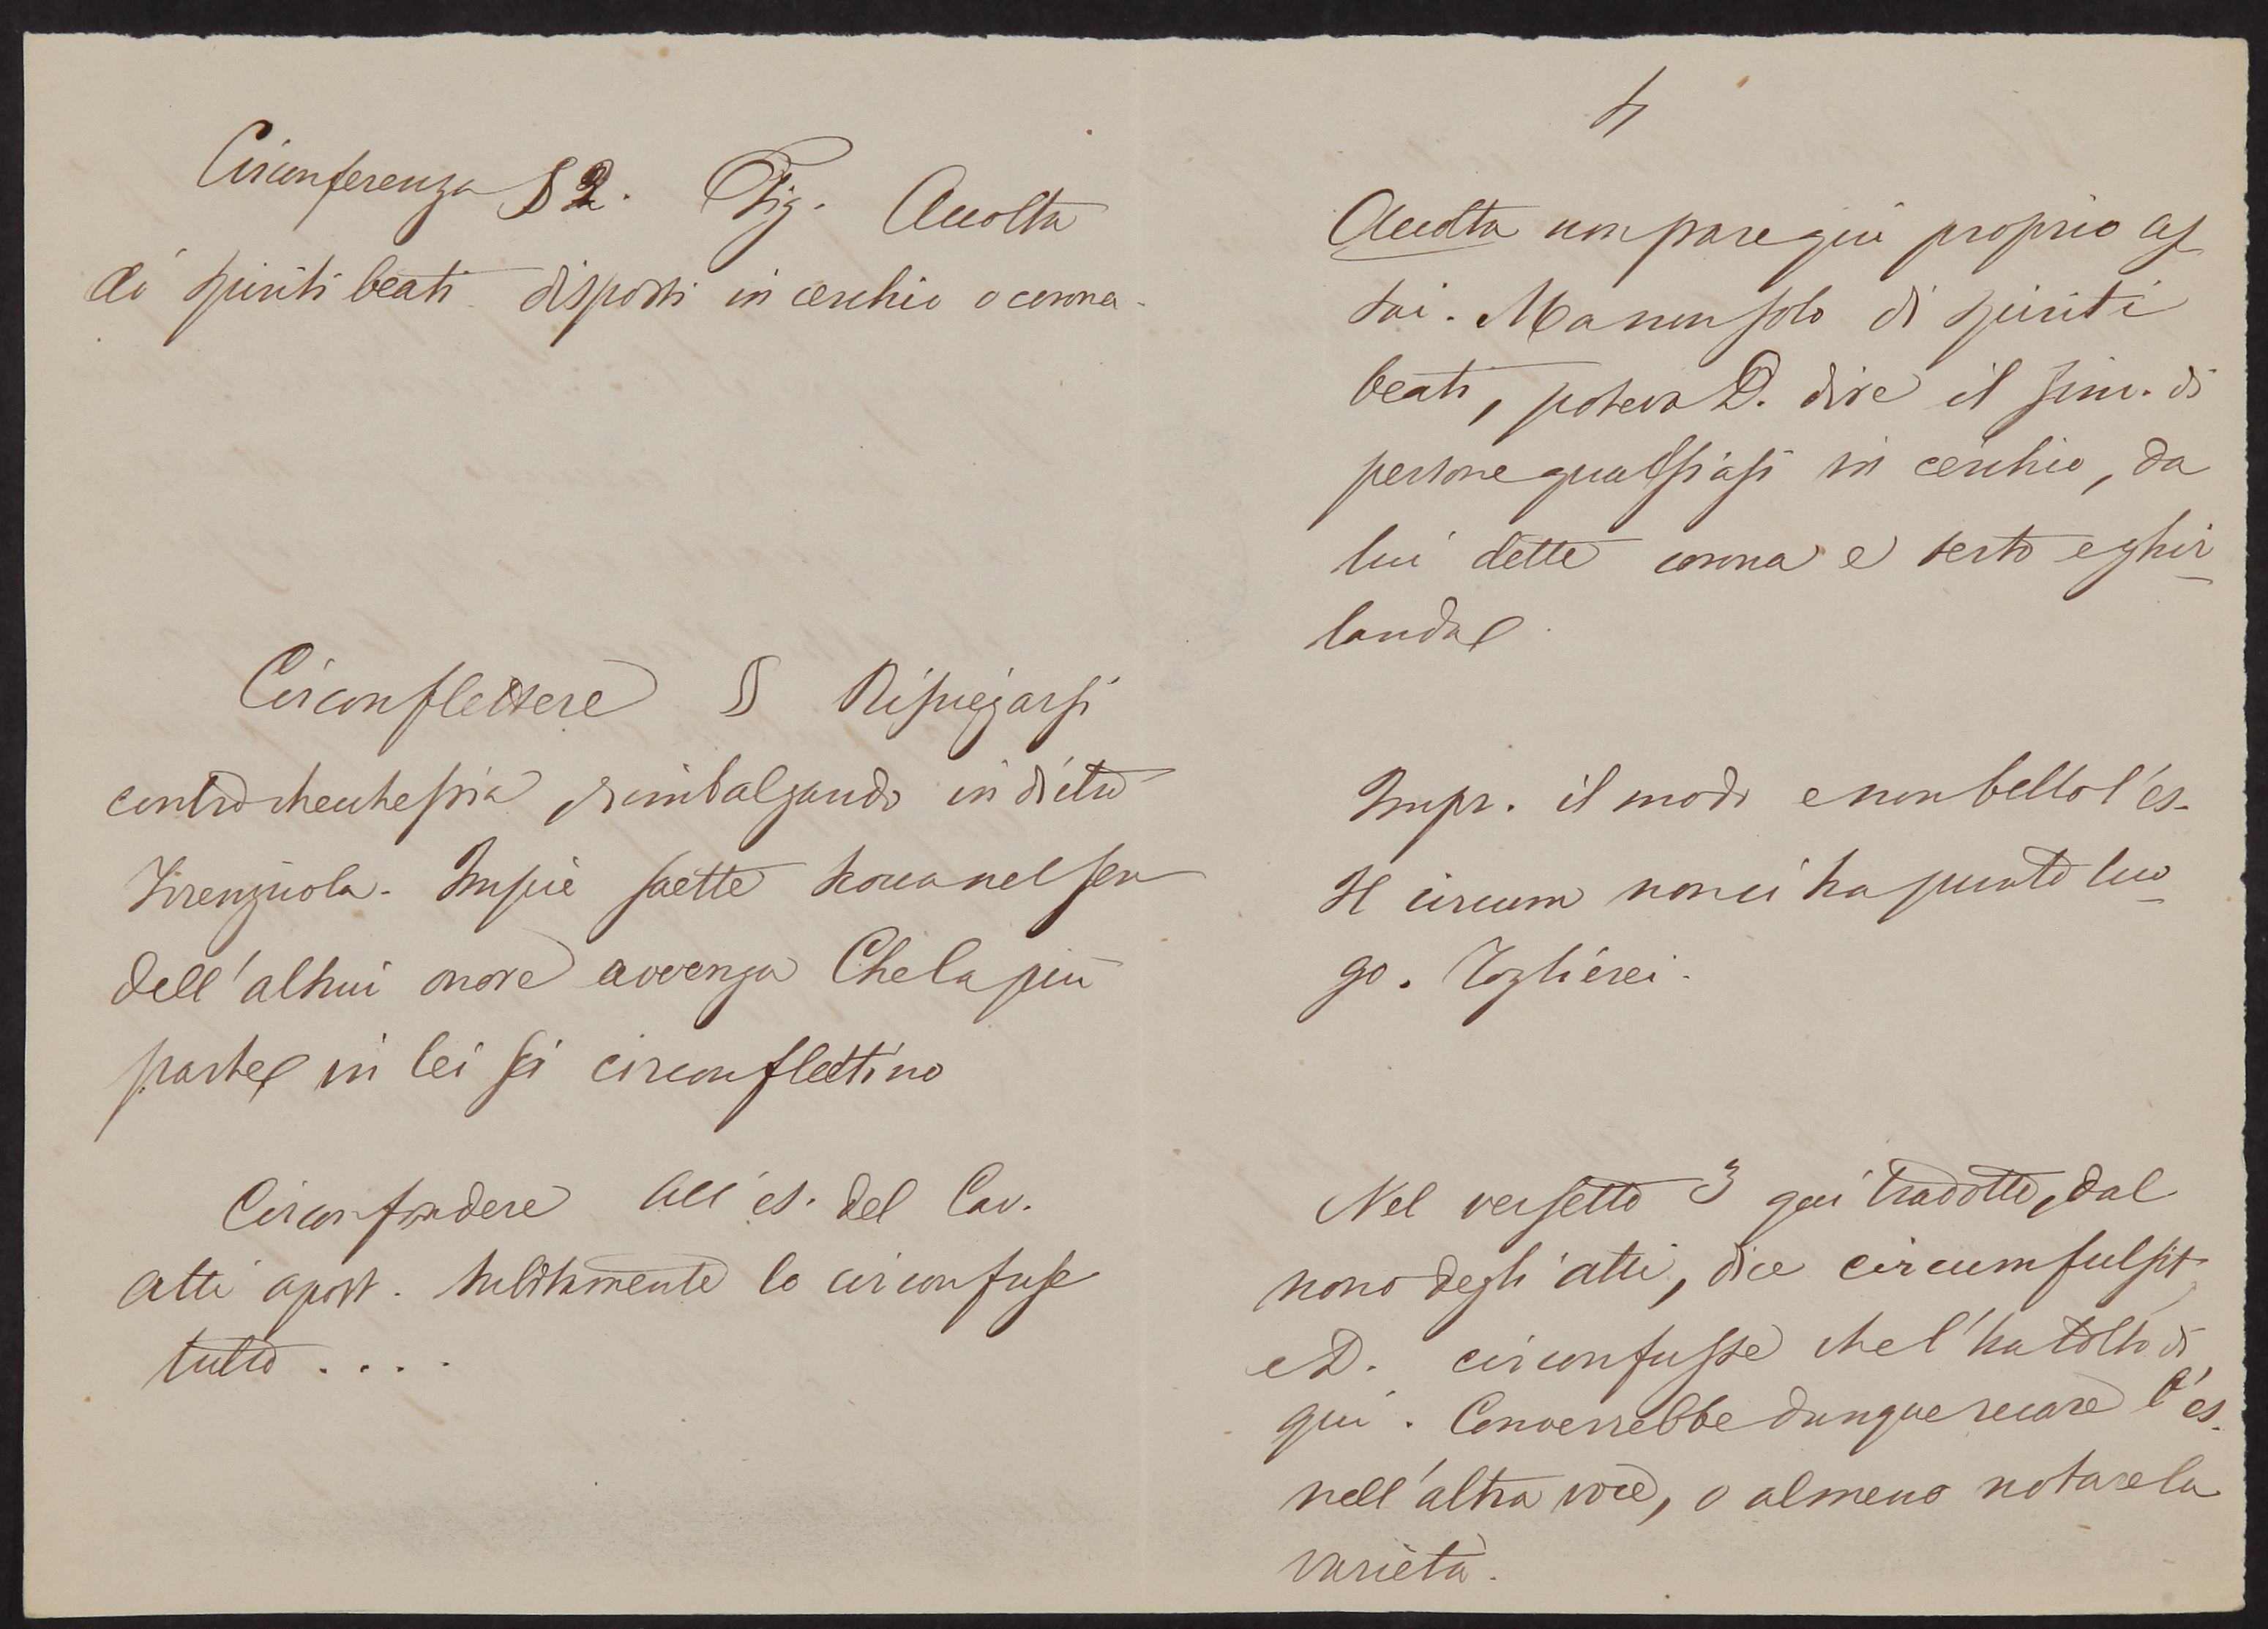 Circonferenza § 2. Fig. Accolta
di spiriti beati disposti in cerchio o corona.
Circonflettere § Ripiegarsi
contro checchessia rimbalzando indietro
Firenzuola. Impie saette scocca nel sen
dell'altrui onore avvenga Che la più
parte in lei si circonflettino
Circonfondere All'es. del Cav.
Atti apost. subitamente lo circonfuse
tutto....
4
Accolta non pare qui proprio as
sai. Ma non solo di spiriti
beati, poteva D. dire il sim. di
persone qualsiasi in cerchio, da
lui dette corona e serto e ghir
landa
Impr. il modo e non bello l'es.
Il circum non ci ha punto luo
go. Toglierei.
Nel versetto 3 qui tradotto, dal
nono degli atti, dice circumfulsit
e D. circonfusse che l'ha tolto di
qui. Converrebbe dunque recare l'es.
nell'altra voce, o almeno notare la
varietà.